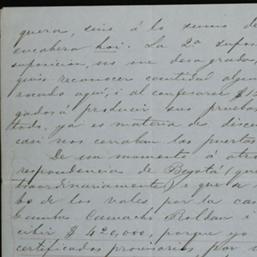 quera, sino á lo sumo de
encabeza hoi. La 2ª supos
suposicion, no me desagrada
quis reconocer cantidad algun
aquí, i al confesarse $1
gadosá producir sus pruebas
todo, ya es materia de discu
casi nos cerraban las puertas
De un momento á otro
respondencias de Bogotá (que
traordinariamente) i que la
bo de los vales, por la cas
Camacho Roldan i
cibir $420,000, porque yo
certificados provisorios, por